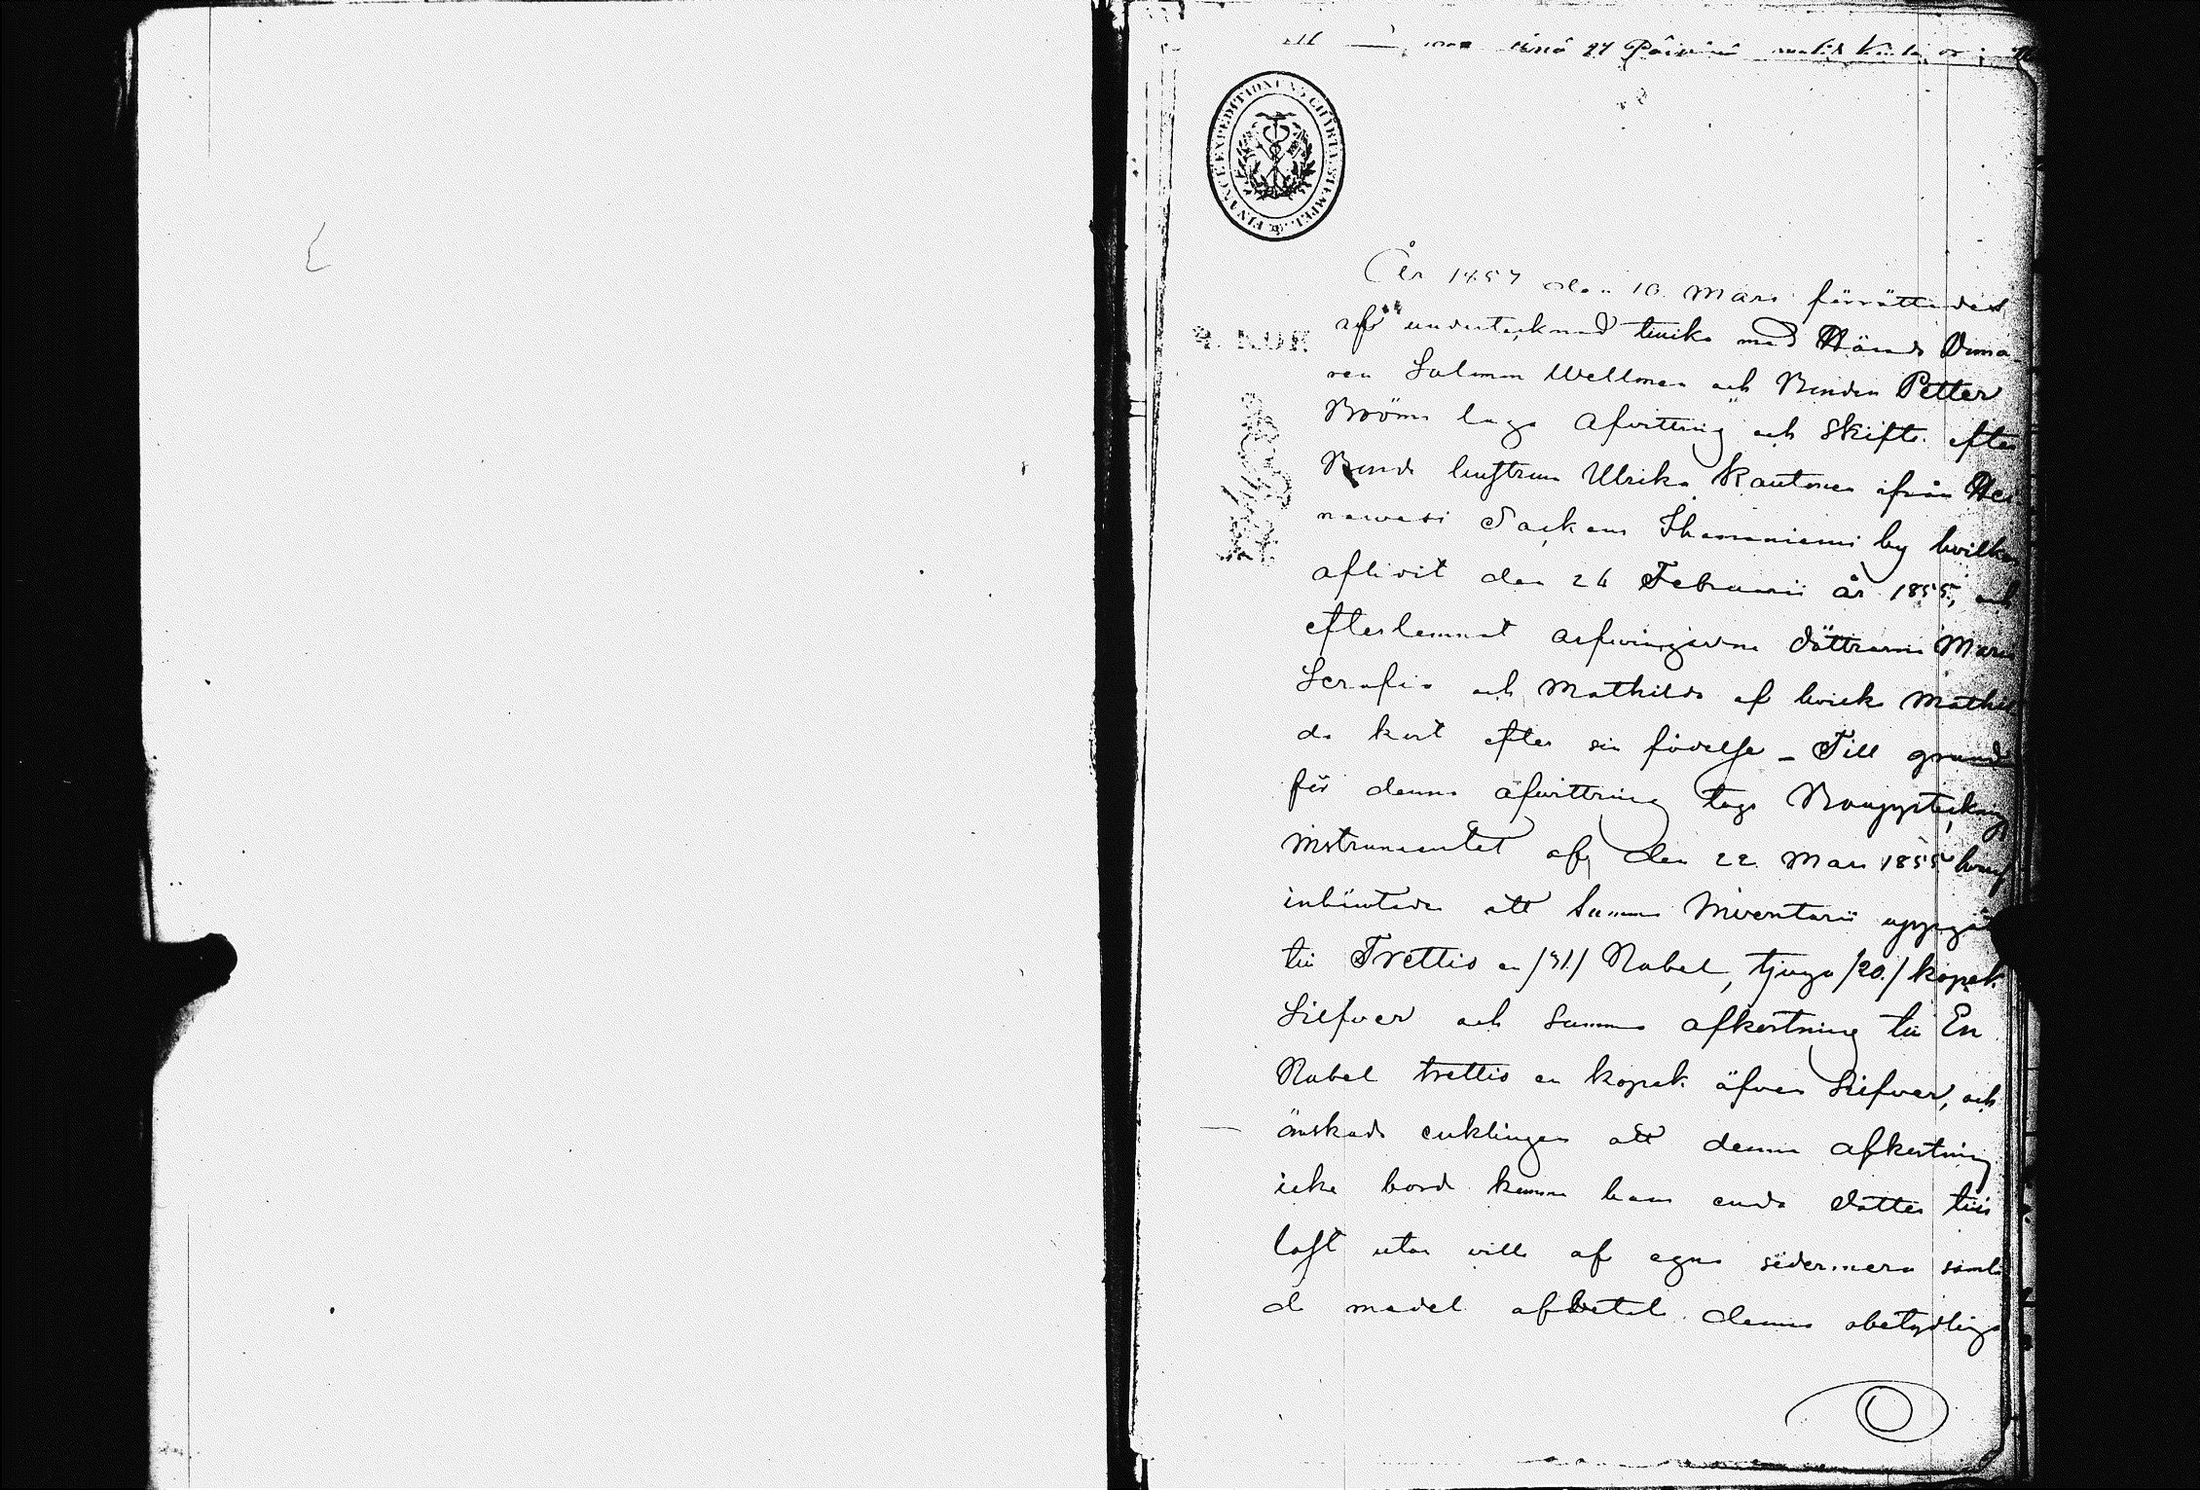 FINANCE EXPEDITIONENS CHARTÆ STEMPEL
År 1857 den 10 Mars förrättades
af undertecknad tillika med Härads Doma-
ren Salomon Wellman och Bonden Petter
Bröms laga Afvittring och Skifte efter
Bonde hustrun Ulrika Kautonen ifrån Hei
nävesi Sockens Ihamaniemi by hvilken
aflidit den 26 Februarii år 1855, och
efterlemnat arfvingarne döttrarne Maria
Serafia och Mathilda af hvilka Mathil
da kort efter sin födelse – Till grund
för denna afvittring togs Bouppteckning
instrumentet af den 22 Mars 1855 hvaraf
inhämtades att Summa Inventarii uppgår
till Trettio en /31./ Rubel, tjugo /20./ kopek
Silfver och Summa afkortning till En
Rubel trettio en kopek äfven Silfver, och
önskade enklingen att denna afkortning
icke borde komma hans enda dotter till
last utan ville af egna sidermera samla
de medel afbetala denna obetydliga